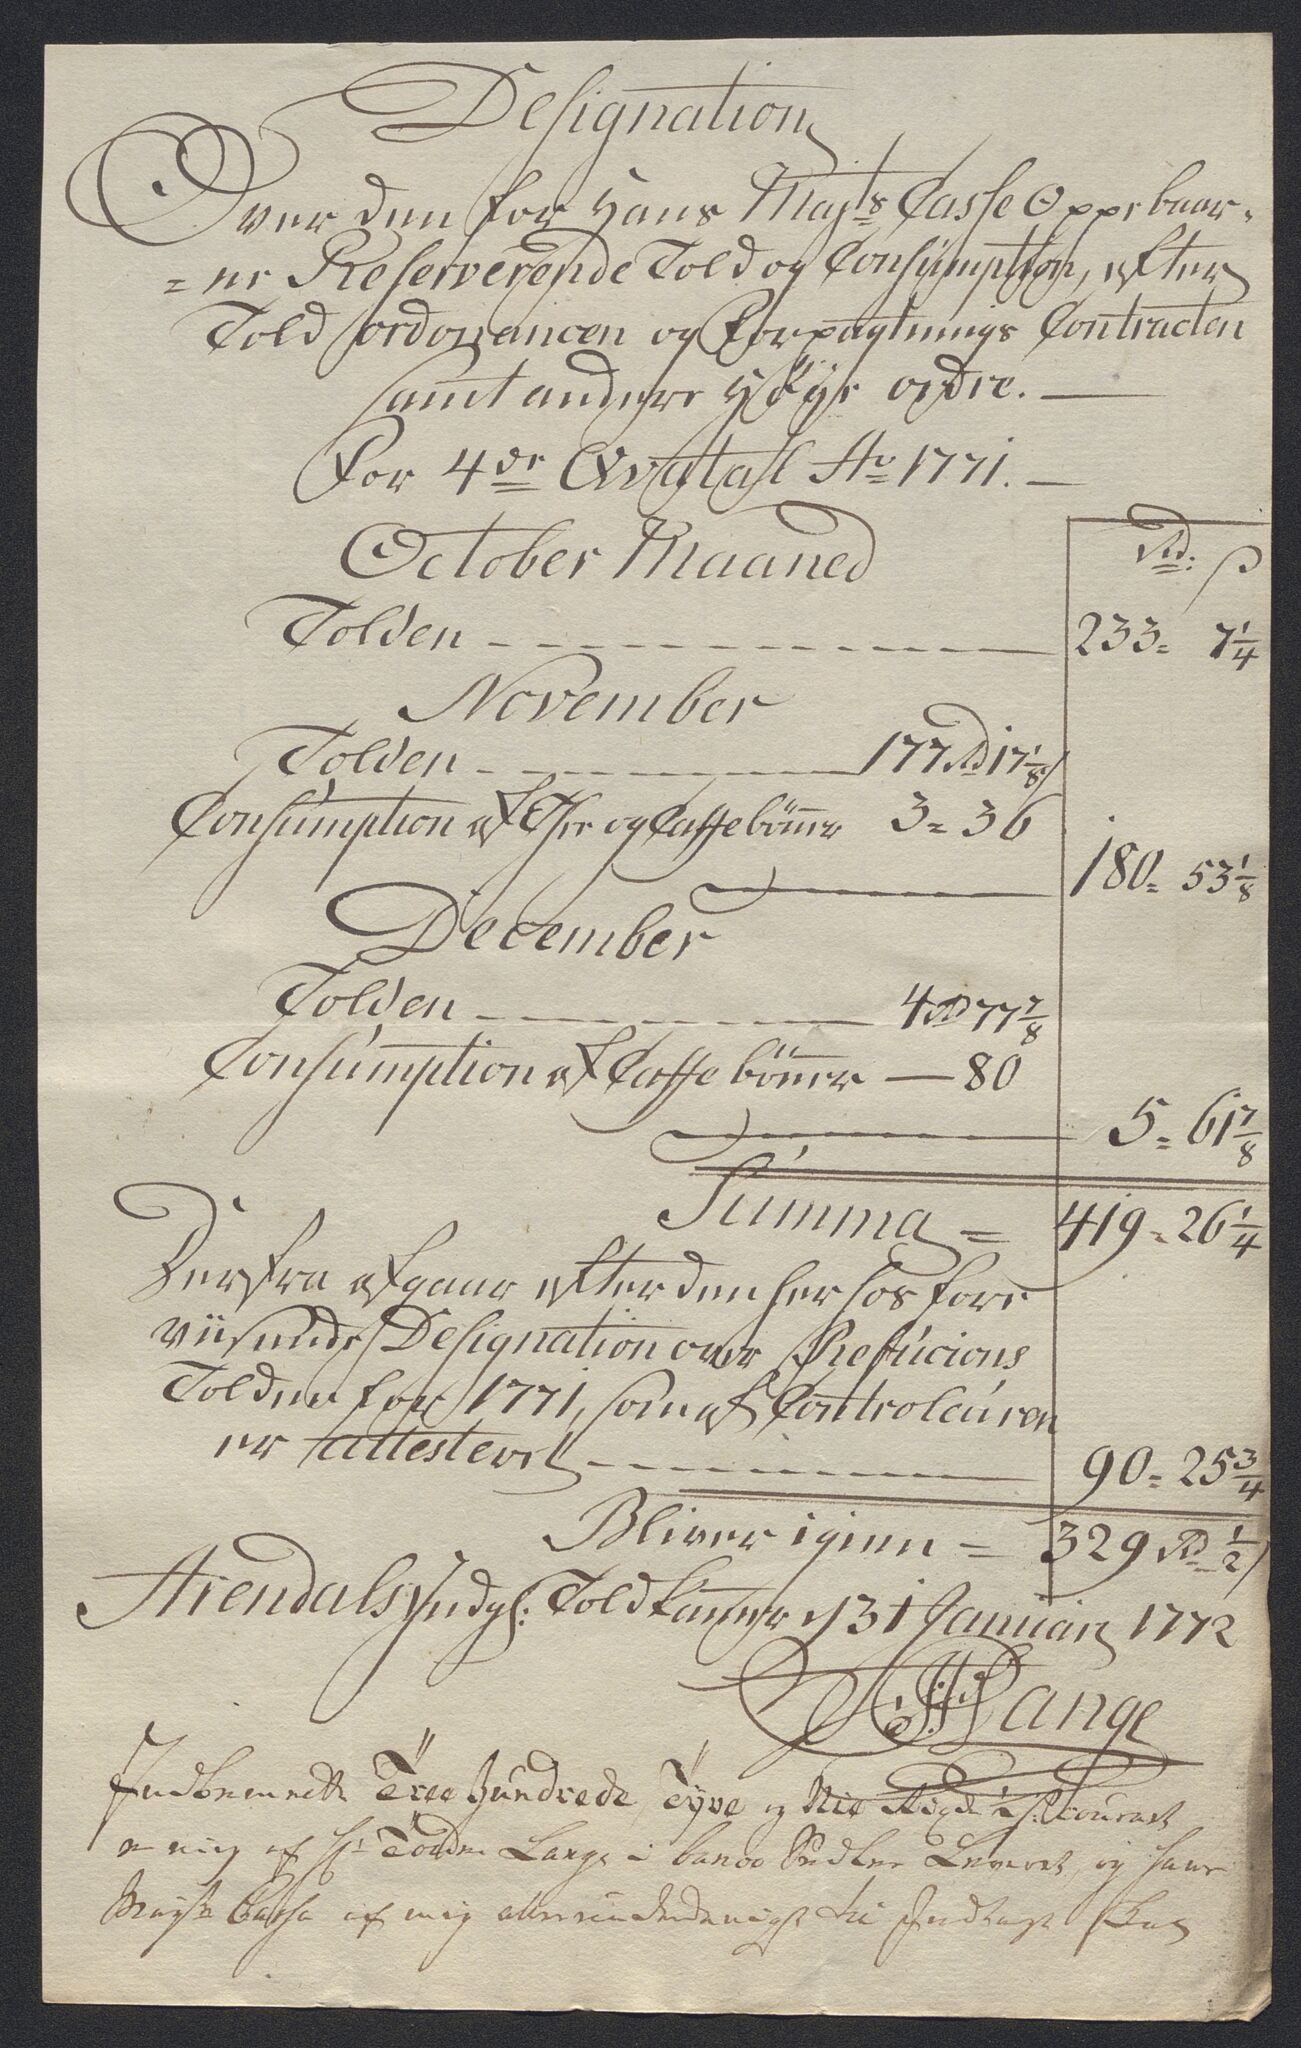 Designation
Over den for Hans Mayts Casse Oppebaar-
=ne Reserverende Told og Consumption, efter
Told ordonancen og Forpagtnings Contracten
samt andere Høye ordre.
For 4de Qvatahl Ao 1771.
October Maaned
Rd: ß
Tolden 233= 7 1/4
November
Tolden 177 Rd 17 1/8 ß
Consumption af The og Caffebønner 3= 36
180= 53 1/8
December
Tolden 4 Rd 77 7/8
Consumption af Caffebønner — 80
5= 61 7/8
Summa = 419= 26 1/4
Derfra afgaar efter den her hos fore
viisende Designation over Refucions
Tolden for 1771, som af Controleuren
er attesteret 90= 25 3/4
Bliver igien = 329 Rd 1/2 ß
Arendals Indg: Toldkammer d 31 Januari 1772
Lange
Indbemelte Tree hundrede Tyve og Nie Rixd 1/2 ß Courant
er mig af Hr Tolder Lange i banco Sedler Leveret, og hans
Mayts Cassa af mig allerunderdanigst til Indtægt